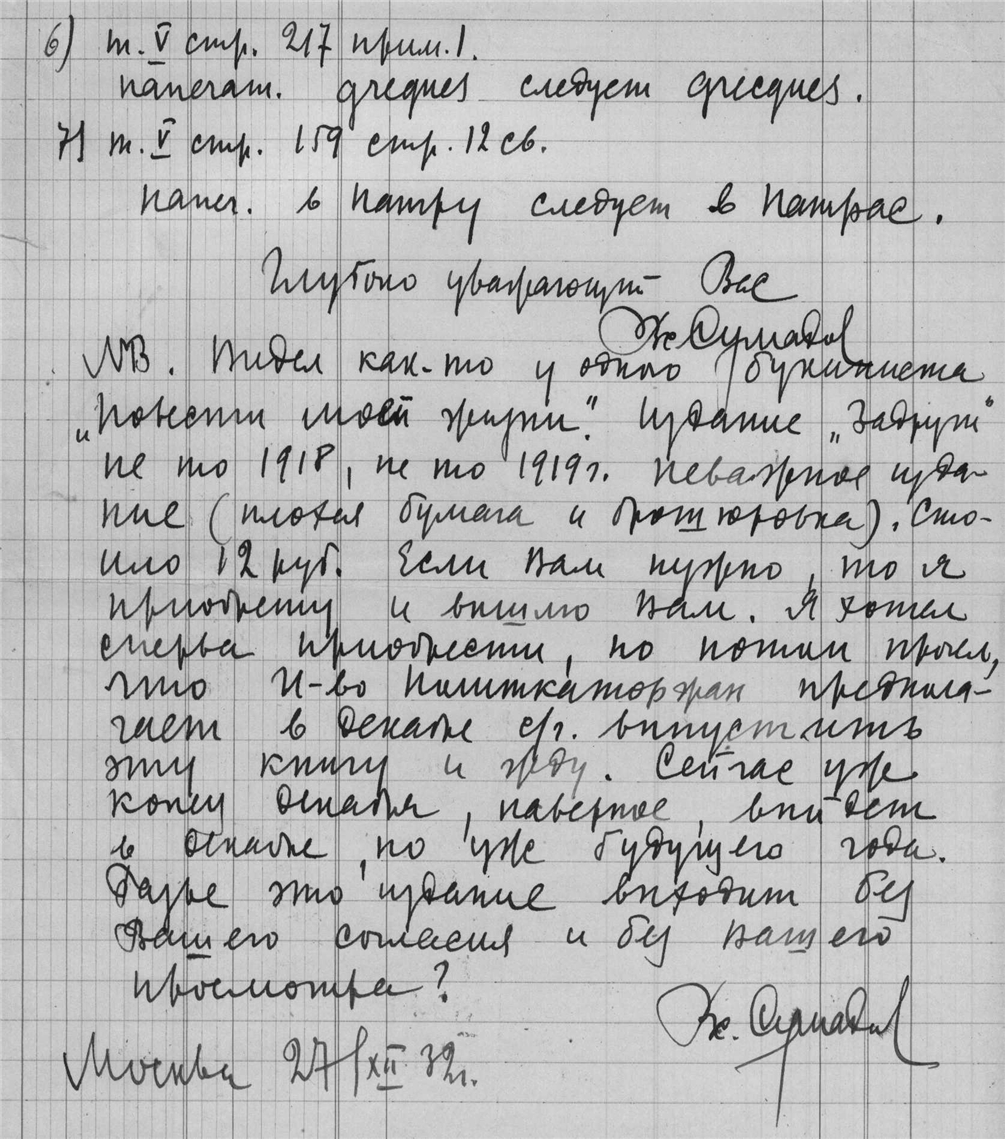 6) т. V стр. 217 прим. 1.
напечат. greques следует grecques.
7) т. V стр. 159 стр. 12 св.
напеч. в Патру следует в Патрас.
Глубоко уважающий Вас
NB. Видел как-то у одного букиниста
„Повести моей жизни". Издание „Задруги"
не то 1918, не то 1919 г. Неважное изда-
ние (плохая бумага и брошюровка). Сто-
ило 12 руб. Если Вам нужно, то я
приобрету и вышлю Вам. Я хотел
сперва приобрести, но потом прочел,
что И-во Политкаторжан предпола-
гает в декабре с/г. выпустить
эту книгу и жду. Сейчас уже
конец декабря, наверное, выйдет
в декабре, но уже будущего года.
Разве это издание выходит без
Вашего согласия и без Вашего
просмотра?
Москва 27/XII 32 г.